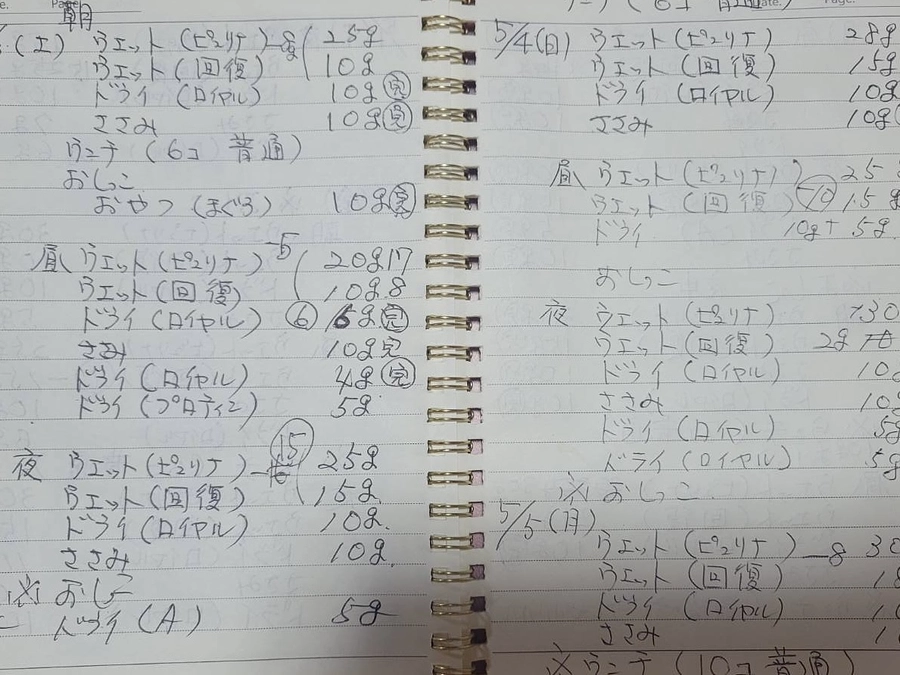 朝
(土) ウエット(ピュリナ) -8 25g
ウエット(回復) 10g
ドライ(ロイヤル) 10g 完
ささみ 10g 完
ウンチ(6コ 普通)
おしっこ
おやつ(まぐろ) 10g 完
昼 ウエット(ピュリナ) -5 20g 17
ウエット(回復) 10g 8
ドライ(ロイヤル) ⑥ 6g 完
ささみ 10g 完
ドライ(ロイヤル) 4g 完
ドライ(プロティエ) 5g
夜 ウエット(ピュリナ) 15 25g
ウエット(回復) 15g
ドライ(ロイヤル) 10g
ささみ 10g
※ おしっこ
ドライ(A) 5g
(6コ 普通)
5/4(日) ウエット(ピュリナ) 28g
ウエット(回復) 15g
ドライ(ロイヤル) 10g
ささみ 10g
昼 ウエット(ピュリナ) 25
ウエット(回復) 15g
ドライ 10g+5g
おしっこ
夜 ウエット(ピュリナ) 30
ウエット(回復) 2g
ドライ(ロイヤル) 10
ささみ 10
ドライ(ロイヤル) 5g
ドライ(ロイヤル) 5g
※ おしっこ
5/5(月)
ウエット(ピュリナ) -8 30
ウエット(回復)
ドライ(ロイヤル)
ささみ
※ウンチ(10コ 普通)